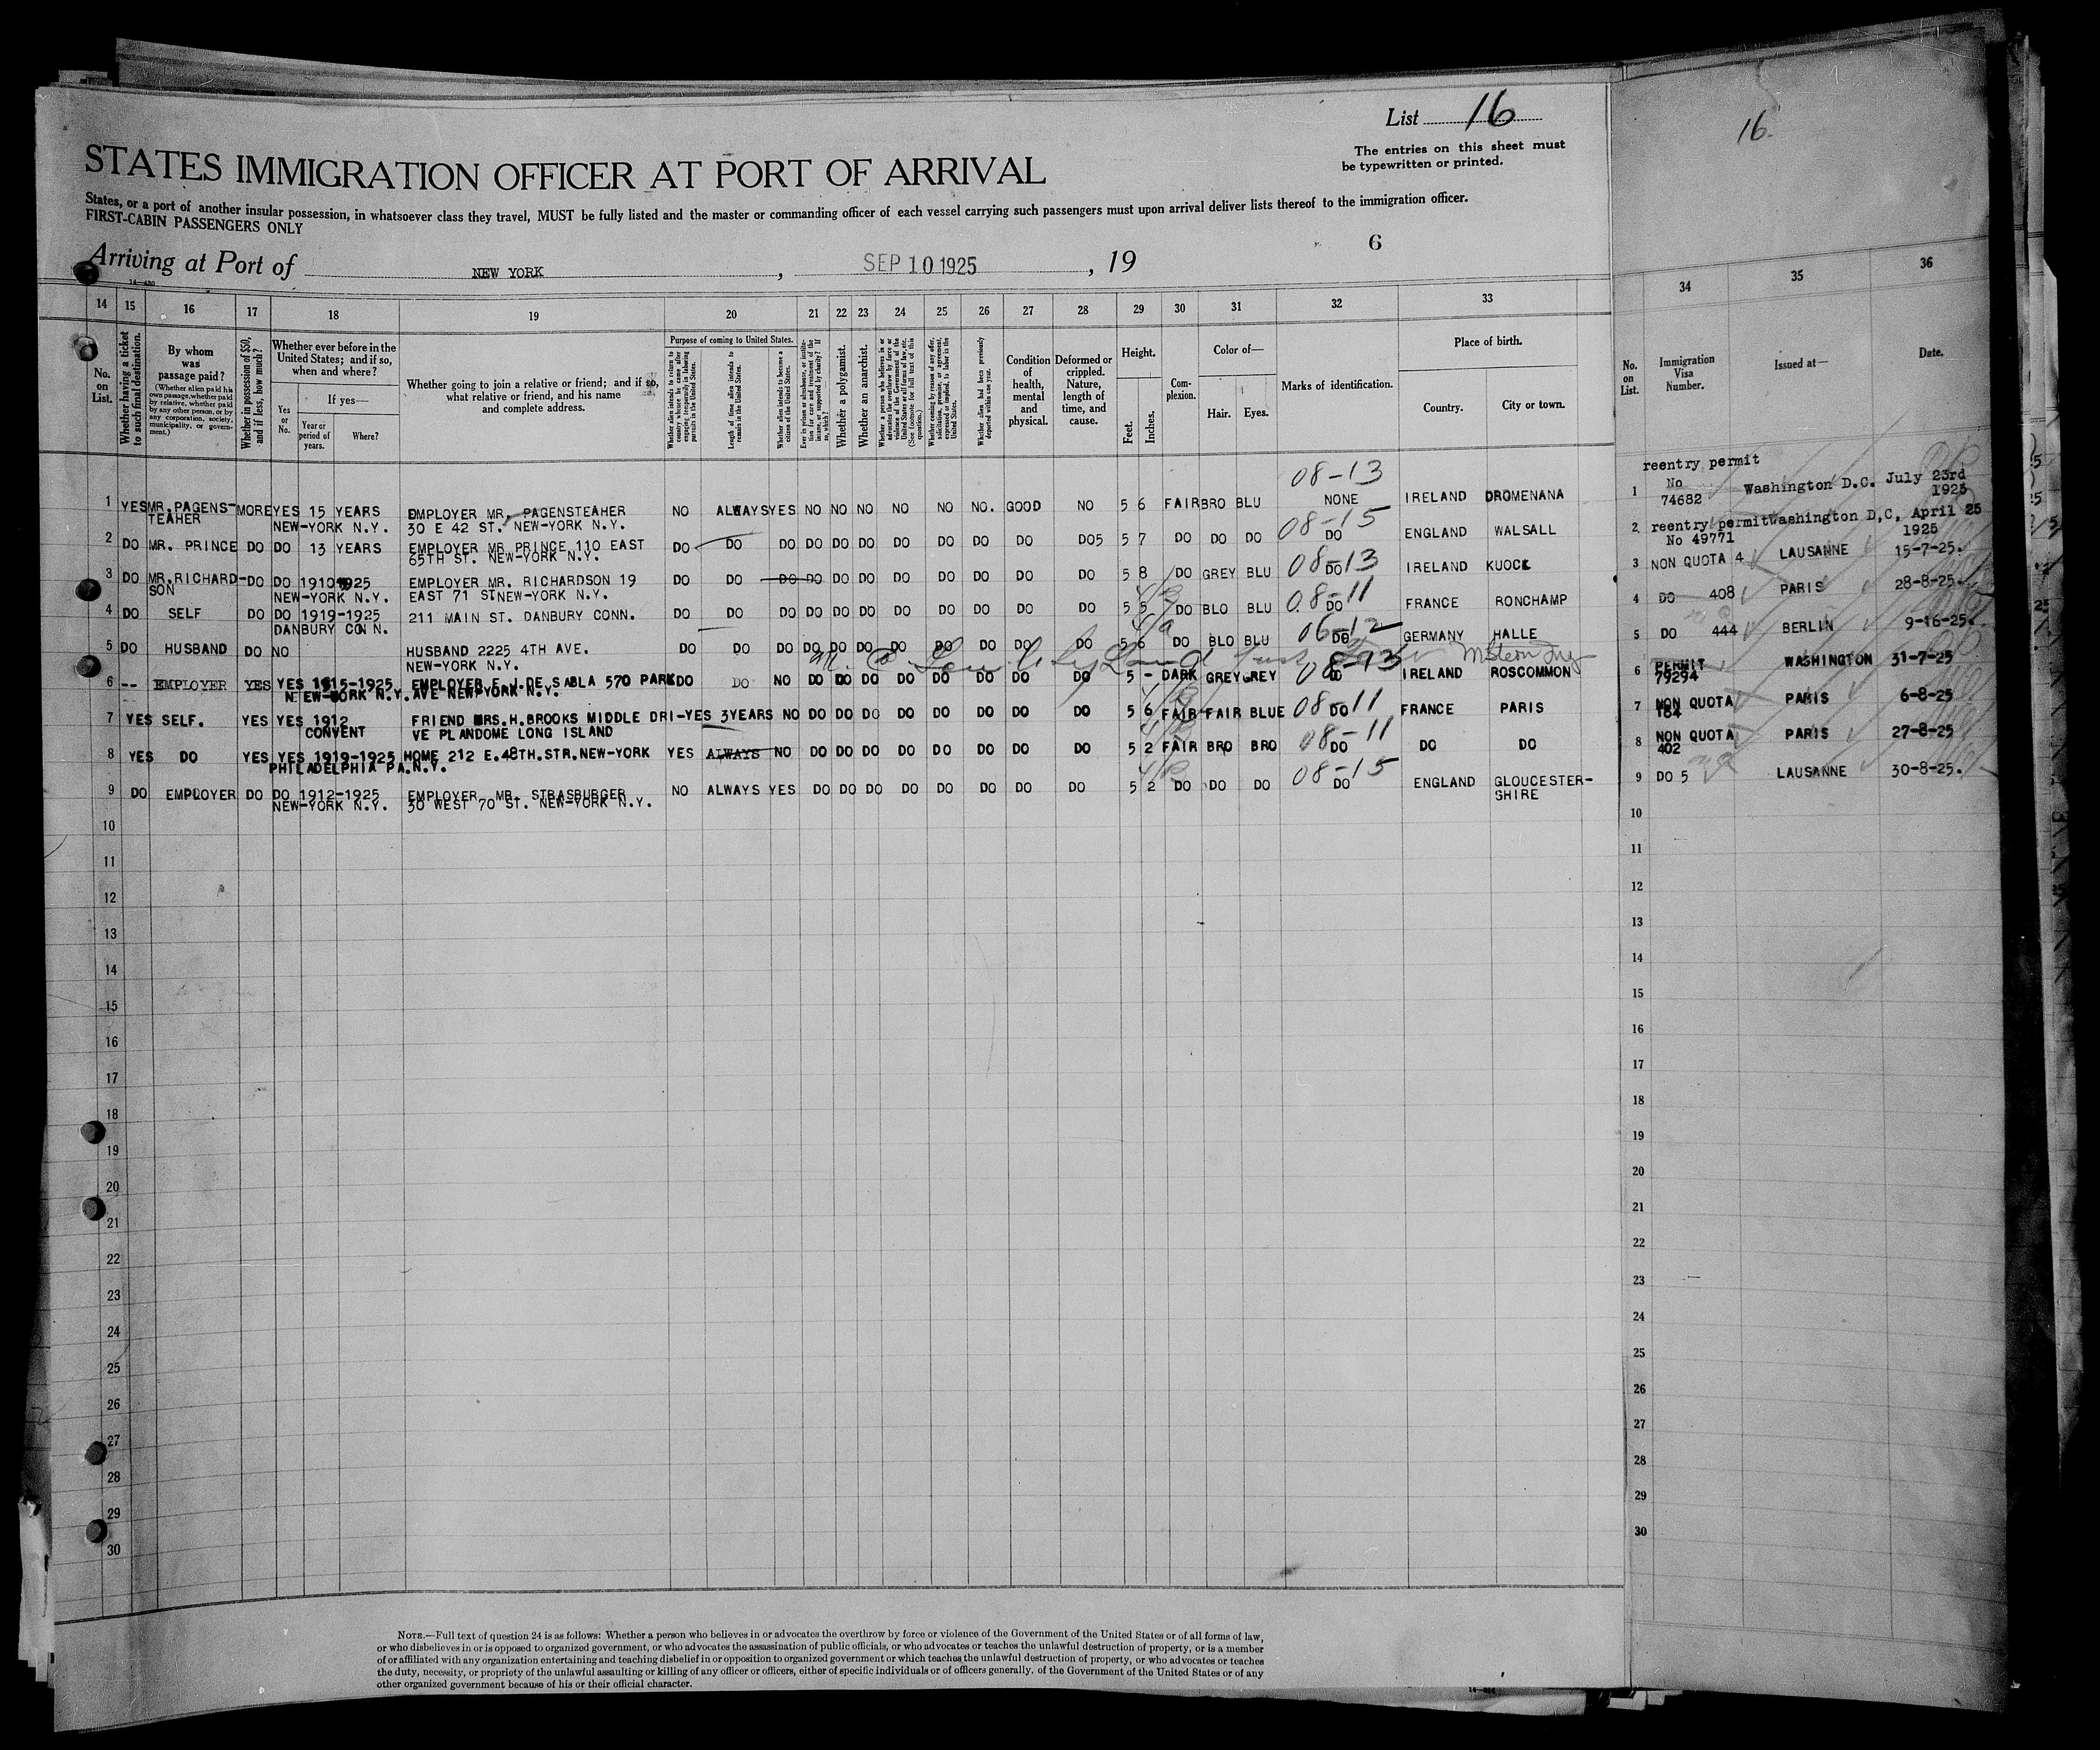 List 16
The entries on this sheet must
be typewritten or printed.
16.
STATES IMMIGRATION OFFICER AT PORT OF ARRIVAL
States, or a port of another insular possession, in whatsoever class they travel, MUST be fully listed and the master or commanding officer of each vessel carrying such passengers must upon arrival deliver lists thereof to the immigration officer.
FIRST-CABIN PASSENGERS ONLY
6
Arriving at Port of NEW YORK , SEP 10 1925 , 19
14 15 16 17 18 19 20 21 22 23 24 25 26 27 28 29 30 31 32 33 34 35 36
No. on List.
Whether having a ticket to such final destination.
By whom was passage paid?
(Whether alien paid his own passage, whether paid by relative, whether paid by any other person, or by any corporation, society, municipality, or government.)
Whether in possession of $50, and if less, how much?
Whether ever before in the United States; and if so, when and where?
Yes or No.
If yes—
Year or period of years.
Where?
Whether going to join a relative or friend; and if so, what relative or friend, and his name and complete address.
Purpose of coming to United States.
Whether alien intends to return to country whence he came after engaging temporarily in laboring pursuits in the United States.
Length of time alien intends to remain in the United States.
Whether alien intends to become a citizen of the United States.
Whether a polygamist.
Whether an anarchist.
Condition of health, mental and physical.
Deformed or crippled. Nature, length of time, and cause.
Height.
Feet.
Inches.
Complexion.
Color of—
Hair.
Eyes.
Marks of identification.
Place of birth.
Country.
City or town.
No. on List.
Immigration Visa Number.
Issued at—
Date.
08-13
1 YES MR. PAGENS- MORE YES 15 YEARS EMPLOYER MR. PAGENSTEAHER NO ALWAYS YES NO NO NO NO NO NO. GOOD NO 5 6 FAIR BRO BLU NONE IRELAND DROMENANA
TEAHER NEW-YORK N.Y. 30 E 42 ST. NEW-YORK N.Y.
reentry permit
1 No 74682 Washington D.C. July 23rd 1925
08-15
2 DO MR. PRINCE DO DO 13 YEARS EMPLOYER MR PRINCE 110 EAST DO DO DO DO DO DO DO DO DO DO DO5 5 7 DO DO DO DO ENGLAND WALSALL
65TH ST. NEW-YORK N.Y.
2 reentry permit Washington D,C, April 25
No 49771 1925
3 DO MR.RICHARD- DO DO 1910-1925 EMPLOYER MR. RICHARDSON 19 DO DO DO DO DO DO DO DO DO DO DO 5 8 DO GREY BLU 08-13 DO IRELAND KUOCK
SON NEW-YORK N.Y. EAST 71 ST NEW-YORK N.Y.
3 NON QUOTA 4 LAUSANNE 15-7-25.
4 DO SELF DO DO 1919-1925 211 MAIN ST. DANBURY CONN. DO DO DO DO DO DO DO DO DO DO DO 5 5 DO BLO BLU 08-11 DO FRANCE RONCHAMP
DANBURY CONN.
4 DO 408 PARIS 28-8-25.
5 DO HUSBAND DO NO HUSBAND 2225 4TH AVE. DO DO DO DO DO DO DO DO DO DO DO 5 6 DO BLO BLU 06-12 DO GERMANY HALLE
NEW-YORK N.Y.
5 DO 444 BERLIN 9-16-25.
6 -- EMPLOYER YES YES 1915-1925 EMPLOYER E.J.DE SABLA 570 PARK DO DO NO DO DO DO DO DO DO DO DO 5 - DARK GREY GREY 08-13 DO IRELAND ROSCOMMON
NEW-YORK N.Y. AVE NEWYORK N.Y.
6 PERMIT WASHINGTON 31-7-25
79294
7 YES SELF. YES YES 1912 FRIEND MRS.H.BROOKS MIDDLE DRI- YES 3YEARS NO DO DO DO DO DO DO DO DO 5 6 FAIR FAIR BLUE 08-11 DO FRANCE PARIS
CONVENT VE PLANDOME LONG ISLAND
7 NON QUOTA PARIS 6-8-25
164
8 YES DO YES YES 1919-1925 HOME 212 E.48TH.STR.NEW-YORK YES ALWAYS NO DO DO DO DO DO DO DO DO 5 2 FAIR BRO BRO 08-11 DO DO DO
PHILADELPHIA PA. N.Y.
8 NON QUOTA PARIS 27-8-25
402
9 DO EMPLOYER DO DO 1912-1925 EMPLOYER MR. STRASBURGER NO ALWAYS YES DO DO DO DO DO DO DO DO 5 2 DO DO DO 08-15 DO ENGLAND GLOUCESTER-
NEW-YORK N.Y. 30 WEST 70 ST. NEW-YORK N.Y. SHIRE
9 DO 5 LAUSANNE 30-8-25.
10 10
11 11
12 12
13 13
14 14
15 15
16 16
17 17
18 18
19 19
20 20
21 21
22 22
23 23
24 24
25 25
26 26
27 27
28 28
29 29
30 30
NOTE.—Full text of question 24 is as follows: Whether a person who believes in or advocates the overthrow by force or violence of the Government of the United States or of all forms of law,
or who disbelieves in or is opposed to organized government, or who advocates the assassination of public officials, or who advocates or teaches the unlawful destruction of property, or is a member
of or affiliated with any organization entertaining and teaching disbelief in or opposition to organized government or which teaches the unlawful destruction of property, or who advocates or teaches
the duty, necessity, or propriety of the unlawful assaulting or killing of any officer or officers, either of specific individuals or of officers generally. of the Government of the United States or of any
other organized government because of his or their official character.